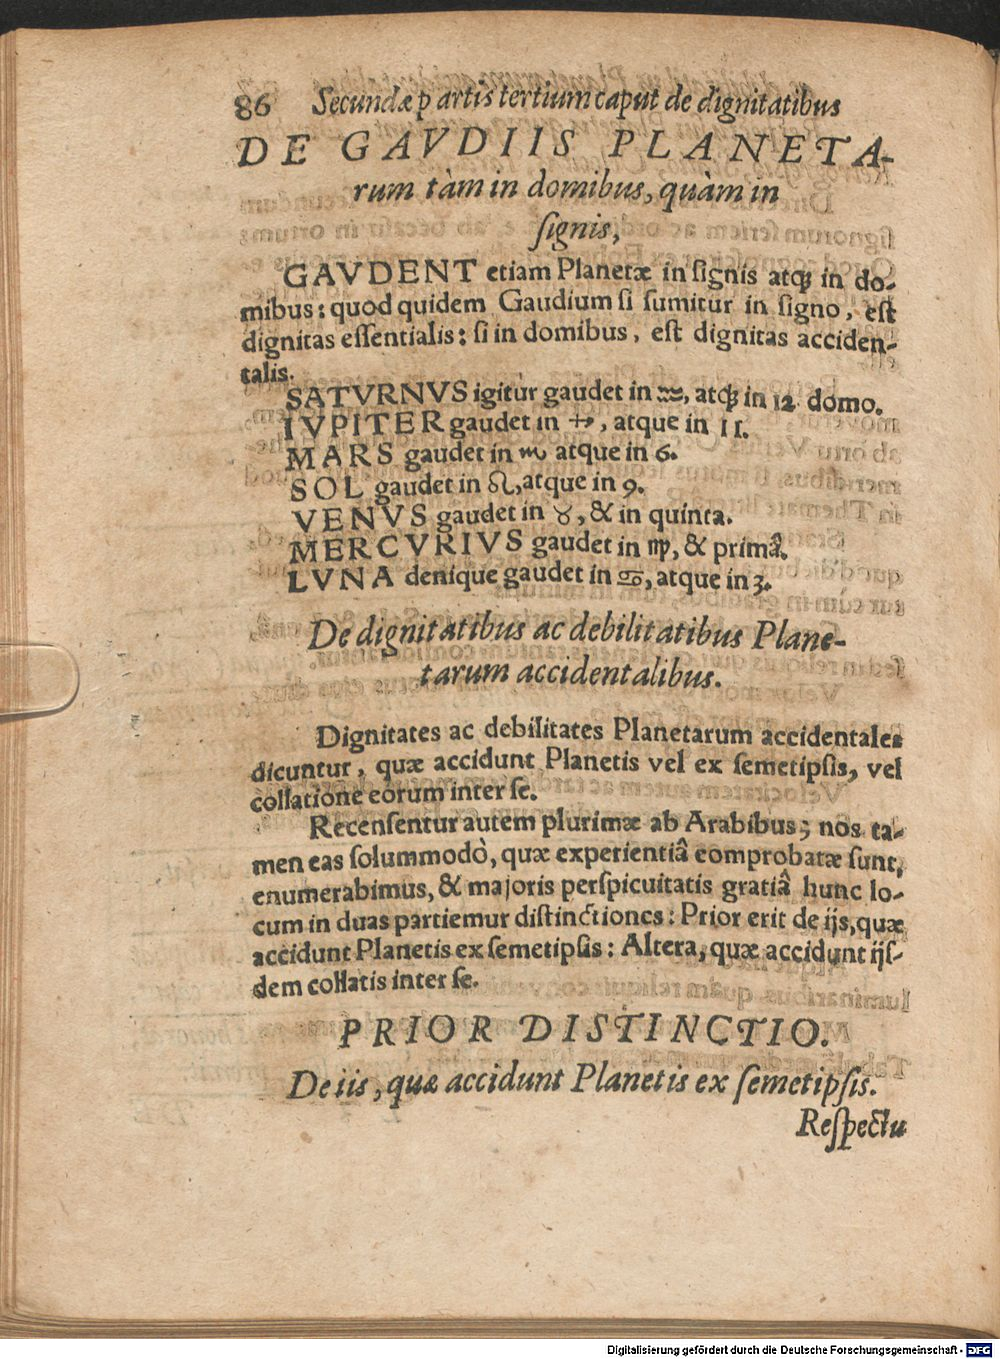 86 Secundæ p artis tertium caput de dignitatibus
DE GAVDIIS PLANETA-
rum tàm in domibus, quàm in
ſignis,
GAVDENT etiam Planetæ in ſignis atq́; in do-
mibus: quod quidem Gaudium ſi ſumitur in ſigno, eſt
dignitas eſſentialis: ſi in domibus, eſt dignitas acciden-
talis.
SATVRNVS igitur gaudet in ♒, atq́; in 12 domo.
IVPITER gaudet in ♐, atque in 11.
MARS gaudet in ♏ atque in 6.
SOL gaudet in ♌, atque in 9.
VENVS gaudet in ♉, & in quinta.
MERCVRIVS gaudet in ♍, & primâ.
LVNA denique gaudet in ♋, atque in 3.
De dignitatibus ac debilitatibus Plane-
tarum accidentalibus.
Dignitates ac debilitates Planetarum accidentales
dicuntur, quæ accidunt Planetis vel ex ſemetipſis, vel
collatione eorum inter ſe.
Recenſentur autem plurimæ ab Arabibus; nos ta-
men eas ſolummodò, quæ experientiâ comprobatæ ſunt,
enumerabimus, & majoris perſpicuitatis gratiâ hunc lo-
cum in duas partiemur diſtinctiones: Prior erit de ijs, quæ
accidunt Planetis ex ſemetipſis: Altera, quæ accidunt ijſ-
dem collatis inter ſe.
PRIOR DISTINCTIO.
De iis, quæ accidunt Planetis ex ſemetipſis.
Reſpectu
Digitalisierung gefördert durch die Deutsche Forschungsgemeinschaft - DFG